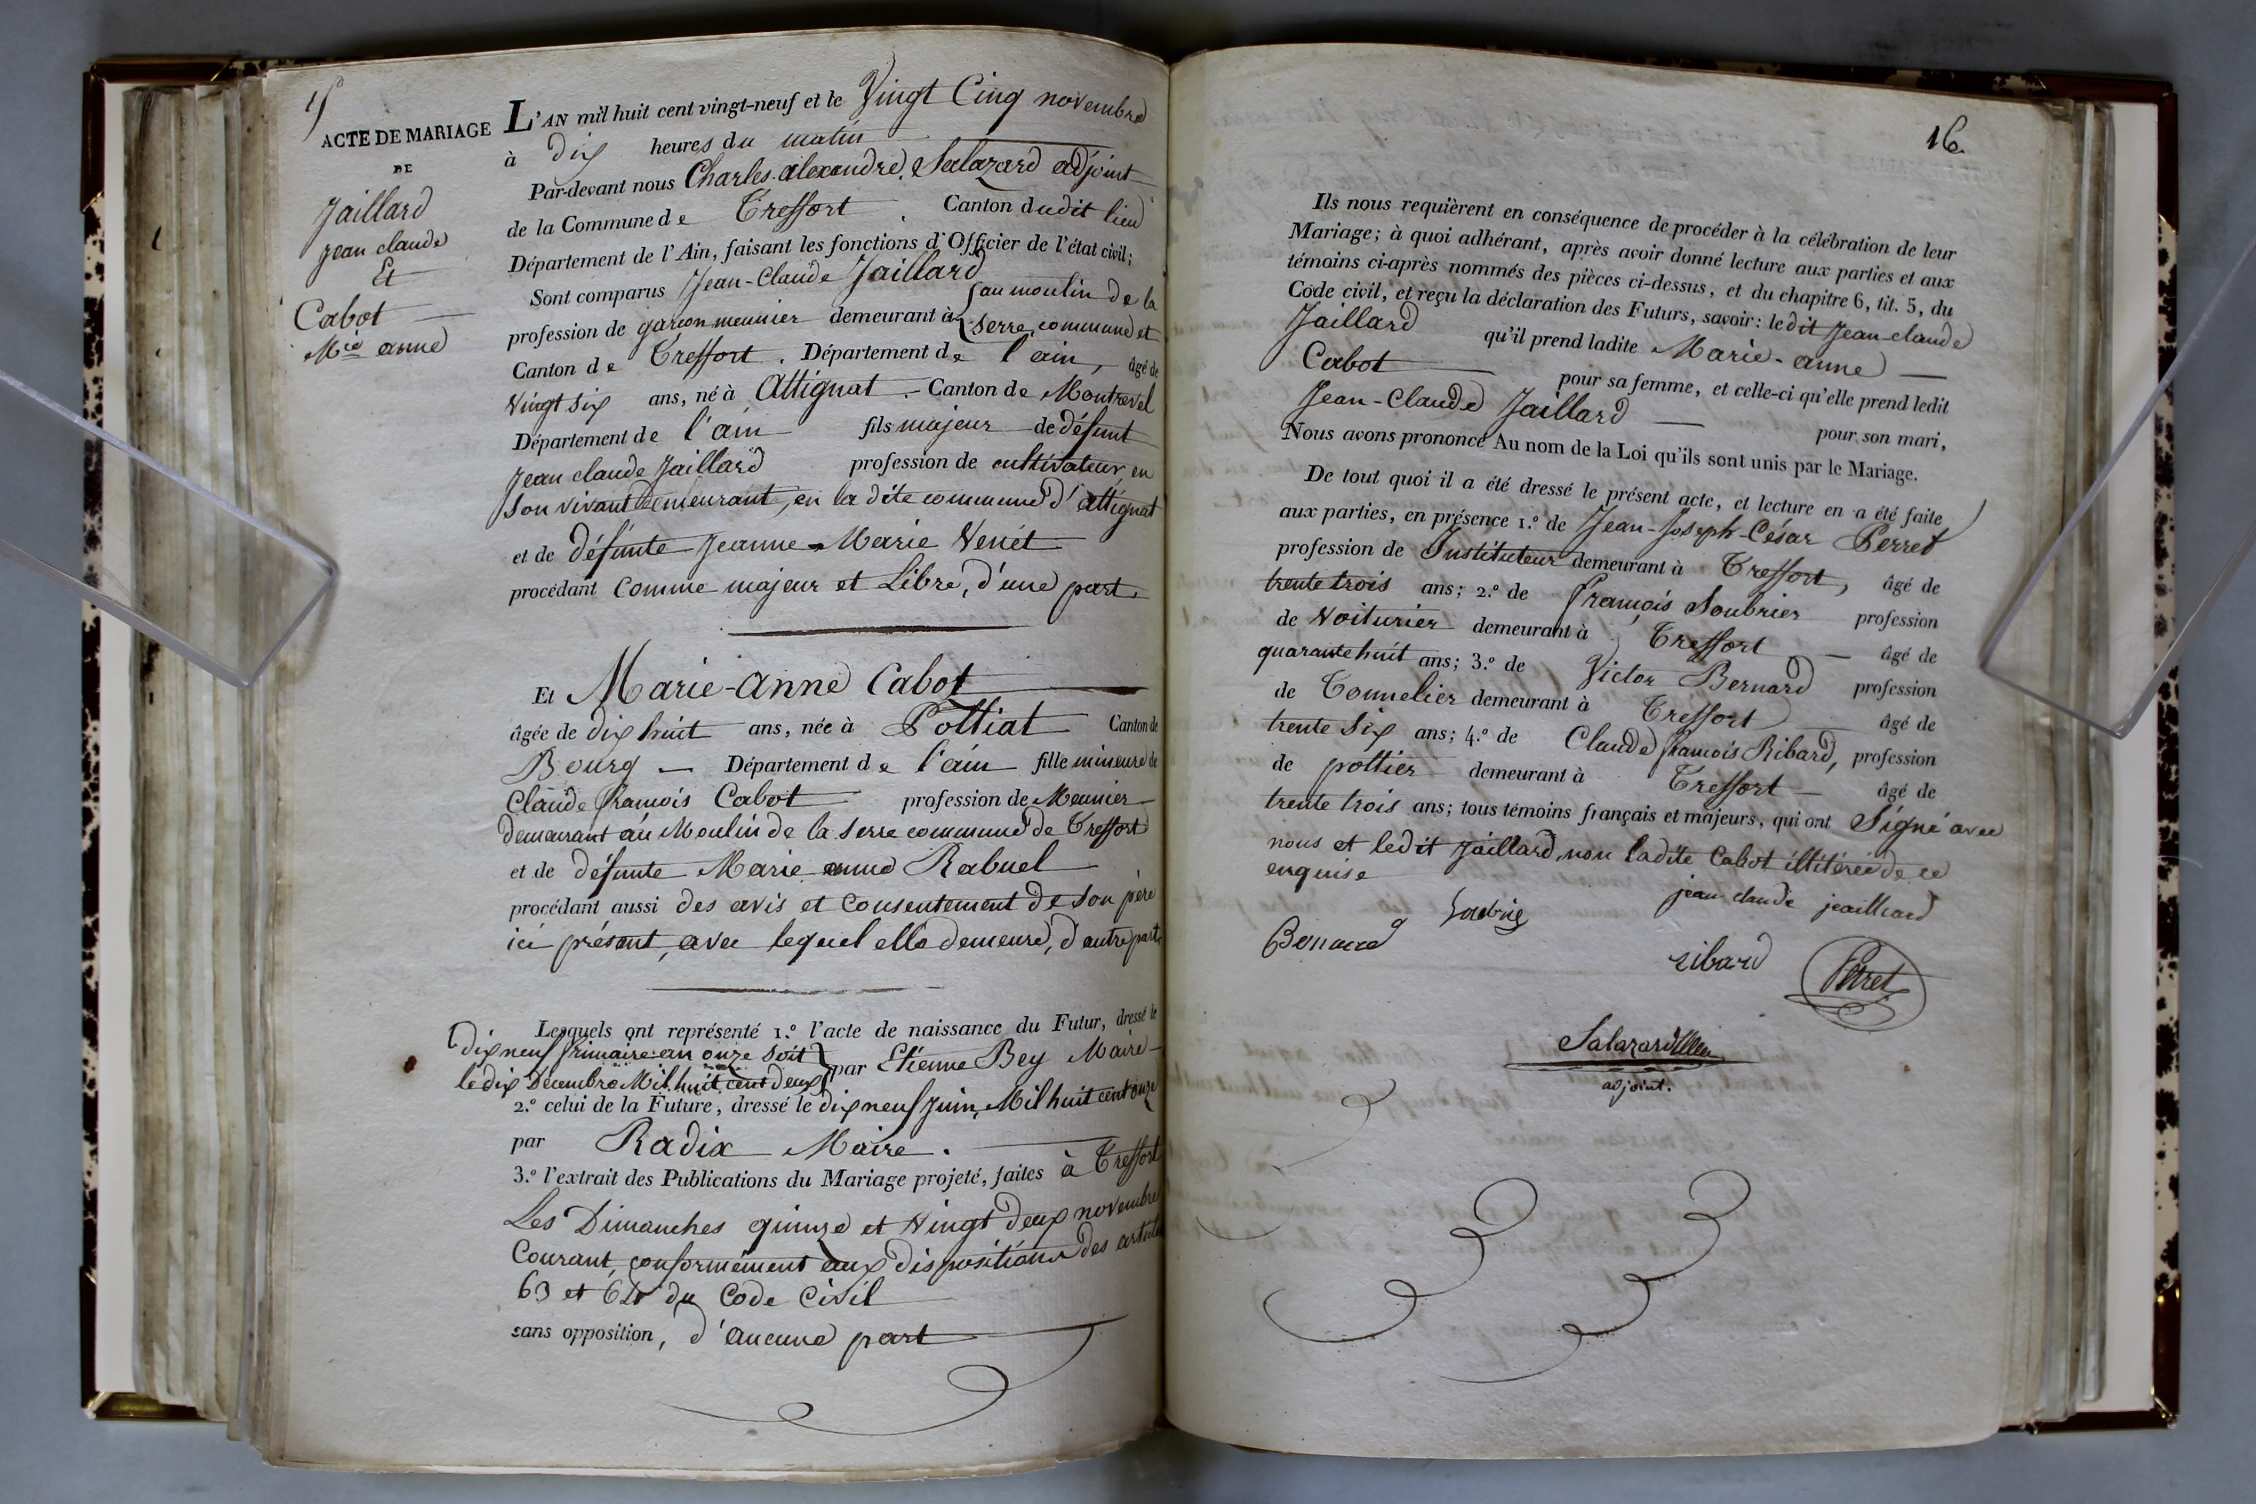 ACTE DE MARIAGE
DE
Jaillard
Jean claude
Et
Cabot
M.ie anne
L'AN mil huit cent vingt-neuf et le Vingt Cinq novembre
à dix heures du matin
Par-devant nous Charles-alexandre Salazard adjoint
de la Commune de Treffort. Canton dudit lieu
Département de l'Ain, faisant les fonctions d'Officier de l'état civil;
Sont comparus Jean-Claude Jaillard
profession de garçon meunier demeurant à au moulin de la
serre, commune et
Canton de Treffort. Département de l'ain, âgé de
Vingt six ans, né à Attignat. Canton de Montrevel
Département de l'ain fils majeur de défunt
Jean claude Jaillard profession de cultivateur, en
son vivant demeurant, en la dite commune d'attignat
et de défunte Jeanne-Marie Venét
procédant comme majeur et Libre, d'une part.
Et Marie-Anne Cabot
âgée de dix huit ans, née à Polliat Canton de
Bourg — Département de l'ain fille mineure de
Claude françois Cabot profession de Meunier
demeurant au Moulin de la serre commune de Treffort
et de défunte Marie anne Rabuel
procédant aussi des avis et consentement de son père
ici présent, avec lequel elle demeure, d'autre part.
Lesquels ont représenté 1.º l'acte de naissance du Futur, dressé le
dix neuf frimaire an onze soit
le dix Décembre Mil huit cent deux par Etienne Bey Maire
2.º celui de la Future, dressé le dix neuf Juin, Mil huit cent onze
par Radix Maire.
3.º l'extrait des Publications du Mariage projeté, faites à Treffort
Les Dimanches quinze et Vingt deux novembre
Courant, conformément aux dispositions des articles
63 et 64 du Code Civil
sans opposition, d'aucune part
16.
Ils nous requièrent en conséquence de procéder à la célébration de leur
Mariage; à quoi adhérant, après avoir donné lecture aux parties et aux
témoins ci-après nommés des pièces ci-dessus, et du chapitre 6, tit. 5, du
Code civil, et reçu la déclaration des Futurs, savoir: ledit Jean-claude
Jaillard qu'il prend ladite Marie-anne —
Cabot pour sa femme, et celle-ci qu'elle prend ledit
Jean-Claude Jaillard — pour son mari,
Nous avons prononcé Au nom de la Loi qu'ils sont unis par le Mariage.
De tout quoi il a été dressé le présent acte, et lecture en a été faite
aux parties, en présence 1.º de Jean-Joseph-César Perret
profession de Instituteur demeurant à Treffort, âgé de
trente trois ans; 2.º de François Soubrier profession
de Voiturier demeurant à Treffort — âgé de
quarante huit ans; 3.º de Victor Bernard profession
de Tonnelier demeurant à Treffort âgé de
trente six ans; 4.º de Claude françois Ribard, profession
de pottier demeurant à Treffort — âgé de
trente trois ans; tous témoins français et majeurs, qui ont Signé avec
nous et ledit Jaillard, non ladite Cabot illitérée de ce
enquise
jean claude jeailliard
ribard
Perret
adjoint.